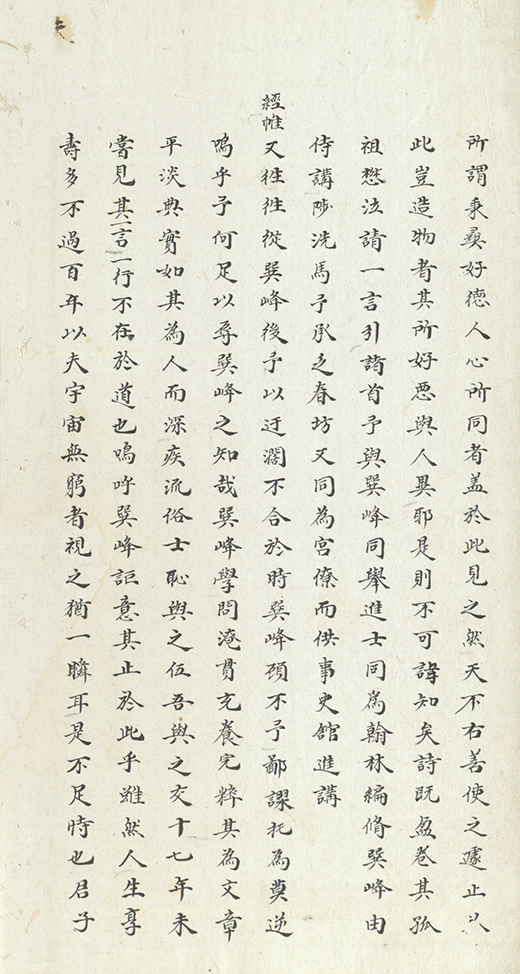 所謂秉彜好德人心所同者盖於此見之然天不右善使之遽止以
此豈造物者其所好惡與人異耶是則不可諱知矣詩既盈卷其孤
祖愁泣請一言引諸首予與巽峰同舉進士同爲翰林編脩巽峰由
侍講陟洗馬予承乏春坊又同為宮僚而供事史舘進講
經帷又徃徃從巽峰後予以迂濶不合於時巽峰顧不予鄙謬托為莫逆
嗚乎予何足以辱巽峰之知哉巽峰學問淹貫充養完粹其為文章
平淡典實如其為人而深疾流俗士恥與之伍吾與之交十七年未
嘗見其一言一行不在於道也嗚呼巽峰詎意其止於此乎雖然人生享
壽多不過百年以夫宇宙無窮者視之猶一瞬耳是不足時也君子